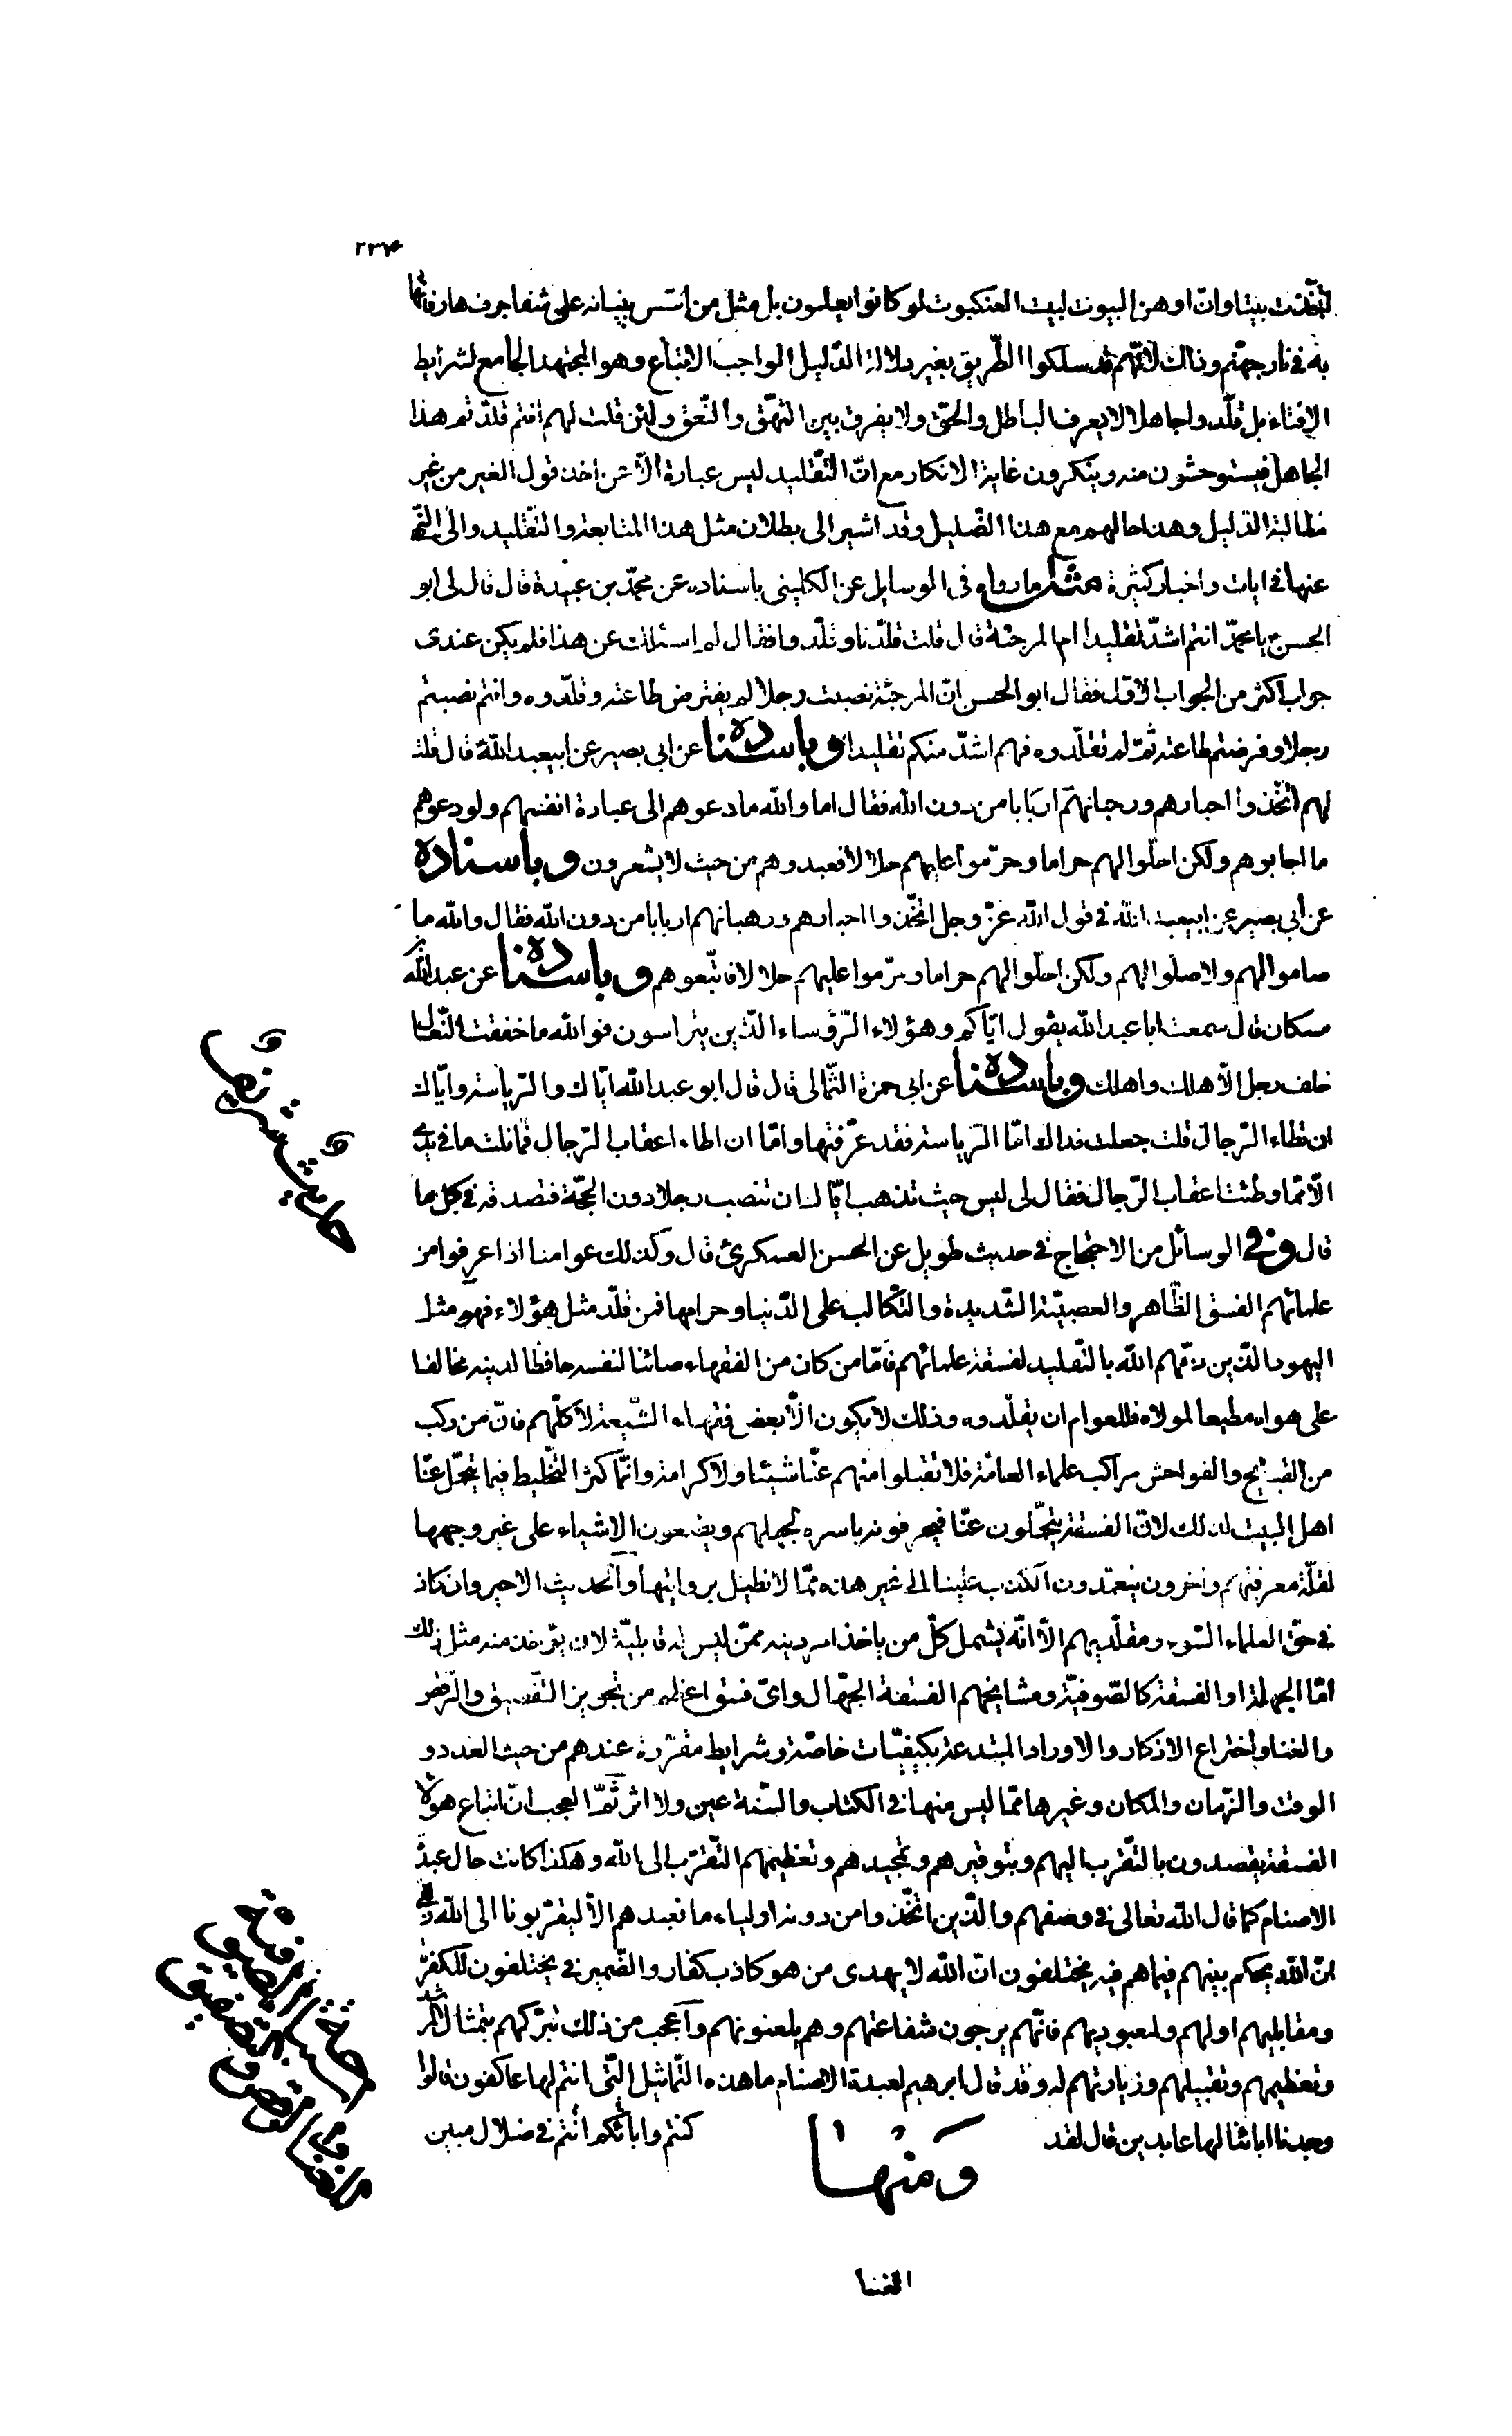 ۲۳۴
اتّخذت بيتا وانّ اوهن البيوت لبيت العنكبوت لو كانوا يعلمون بل مثل من اسّس بنيانه على شفا جرف هار فانها
به فى نار جهنّم وذلك لانّهم قد سلكوا الطّريق بغير دلالة الدّليل الواجب الاتباع وهو المجتهد الجامع لشرايط
الافتاء بل قلّدوا جاهلا لا يعرف الباطل والحقّ ولا يفرق بين التهّق والنّعق ولئن قلت لهم انتم قلّدتم هذا
الجاهل فيستوحشون منه وينكرون غاية الانكار مع انّ التّقليد ليس عبارة الّا عن اخذ قول الغير من غير
مطالبة الدليل وهذا حالهم مع هذا الضّليل وقد اشير الى بطلان مثل هذا المتابعة والتّقليد والى النّهى
عنها فى ايات واخبار كثيرة مثل ما رواه فى الوسايل عن الكلينى باسناده عن محمّد بن عبيدة قال قال لى ابو
الحسن ع يا محمّد انتم اشدّ تقليدا ام المرجئة قال قلت قلّدنا وقلّدوا فقال لم اسئلك عن هذا فلم يكن عندى
جواب اكثر من الجواب الاوّل فقال ابو الحسن انّ المرجئة نصبت رجلا لم يفترض طاعته وقلّدوه وانتم نصبتم
رجلا وفرضتم طاعته ثمّ لم تقلّدوه فهم اشدّ منكم تقليدا وباسناده عن ابى بصير عن ابيعبد اللّه قال قلت
لهم اتّخذوا احبارهم ورهبانهم اربابا من دون اللّه فقال اما واللّه ما دعوهم الى عبادة انفسهم ولو دعوهم
ما اجابوهم ولكن احلّوا لهم حراما وحرّموا عليهم حلالا فعبدوهم من حيث لا يشعرون وباسناده
عن ابى بصير عن ابيعبد اللّه فى قول اللّه عزّ وجل اتّخذوا احبارهم ورهبانهم اربابا من دون اللّه فقال واللّه ما
صاموا لهم ولا صلّوا لهم ولكن احلّوا لهم حراما وحرّموا عليهم حلالا فاتّبعوهم وباسناده عن عبد اللّه بن
مسكان قال سمعت ابا عبد اللّه يقول ايّاكم وهؤلاء الرّؤساء الّذين يتراسون فو اللّه ما خفقت النّعال
خلف رجل الّا هلك واهلك وباسناده عن ابى حمزة الثّمالى قال قال ابو عبد اللّه ايّاك والرّياسة وايّاك
ان تطاء الرّجال قلت جعلت فداك امّا الرّياسة فقد عرفتها وامّا ان اطاء اعقاب الرّجال فما ثلث ما فى يدى
الّا ممّا وطئت اعقاب الرّجال فقال لى ليس حيث تذهب ايّاك ان تنصب رجلا دون الحجّة فتصدقه فى كل ما
قال وفى الوسائل من الاحتجاج فى حديث طويل عن الحسن العسكرىّ قال وكذلك عوامنا اذا عرفوا من
علمائهم الفسق الظّاهر والعصبيّة الشّديدة والتّكالب على الدّنيا وحرامها فمن قلّد مثل هؤلاء فهو مثل
اليهود الّذين ذمّهم اللّه بالتّقليد لفسقة علمائهم فامّا من كان من الفقهاء صائنا لنفسه حافظا لدينه مخالفا
على هواه مطيعا لمولاه فللعوام ان يقلّدوه وذلك لا يكون الّا بعض فقهاء الشّيعة لا كلّهم فانّ من ركب
من القبايح والفواحش مراكب علماء العامّة فلا تقبلوا منهم عنّا شيئا ولا كرامة وانّما كثر التّخليط فيما يتحمّل عنّا
اهل البيت لذلك لانّ الفسقة يتحمّلون عنّا فيحرفونه باسره لجهلهم ويضعون الاشياء على غير وجهها
لقلّة معرفتهم واخرون يتعمّدون الكذب علينا الى غير هذه ممّا لا نطيل بروايتها والحديث الاخير وان كان
فى حقّ العلماء السّوء ومقلّديهم الّا انّه يشمل كلّ من ياخذ امر دينه ممّن ليس له قابليّة لان يؤخذ منه مثل ذلك
امّا الجهلة او الفسقة كالصّوفيّة ومشايخهم الفسقة الجهّال واىّ فسق اعظم من تجويز التّصفيق والرّقص
والغنا واختراع الاذكار والاوراد المبتدعة بكيفيّات خاصّة وشرايط مقرّرة عندهم من حيث العدد و
الوقت والزّمان والمكان وغيرها ممّا ليس منها فى الكتاب والسّنة عين ولا اثر ثمّ العجب انّ اتباع هؤلاء
الفسقة يقصدون بالتّقرب اليهم وبتوقيرهم وتمجيدهم وتعظيمهم التّقرّب الى اللّه وهكذا كانت حال عبدة
الاصنام كما قال اللّه تعالى فى وصفهم والّذين اتّخذوا من دونه اولياء ما نعبدهم الّا ليقرّبونا الى اللّه زلفى
انّ اللّه يحكم بينهم فيما هم فيه يختلفون انّ اللّه لا يهدى من هو كاذب كفار والضّمير فى يختلفون للكفرة
ومقابليهم او لهم ولمعبوديهم فانّهم يرجون شفاعتهم وهم يلعنونهم واعجب من ذلك تبرّكهم بتمثال المرشد
وتعظيمهم وتقبيلهم وزيارتهم له وقد قال ابرهيم لعبدة الاصنام ما هذه التّماثيل الّتى انتم لها عاكفون قالوا
وجدنا اباءنا لها عابدين قال لقد كنتم وابائكم انتم فى ضلال مبين
ومنها
الغنا